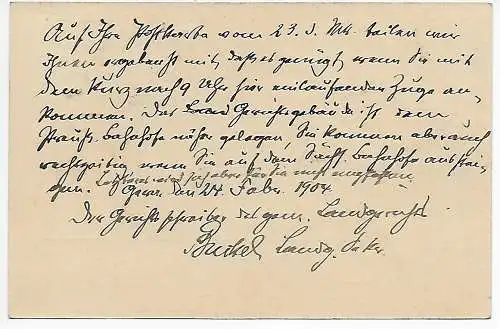 Auf Ihre Postkarte vom 23. d. Mts. teilen wir
Ihnen ergebenst mit, daß es genügt, wenn Sie mit
dem kurz nach 9 Uhr hier einlaufenden Zuge an-
kommen. Das Land Gerichtsgebäude ist dem
Preuß. Bahnhofe näher gelegen, Sie kommen aber auch
rechtzeitig wenn Sie auf dem Sächs. Bahnhofe ausstei-
gen. wird sich aber für Sie
Gera, den 24. Febr. 1904
Der Gerichtsschreiber des gem. Landgerichts
Landg. Sekr.